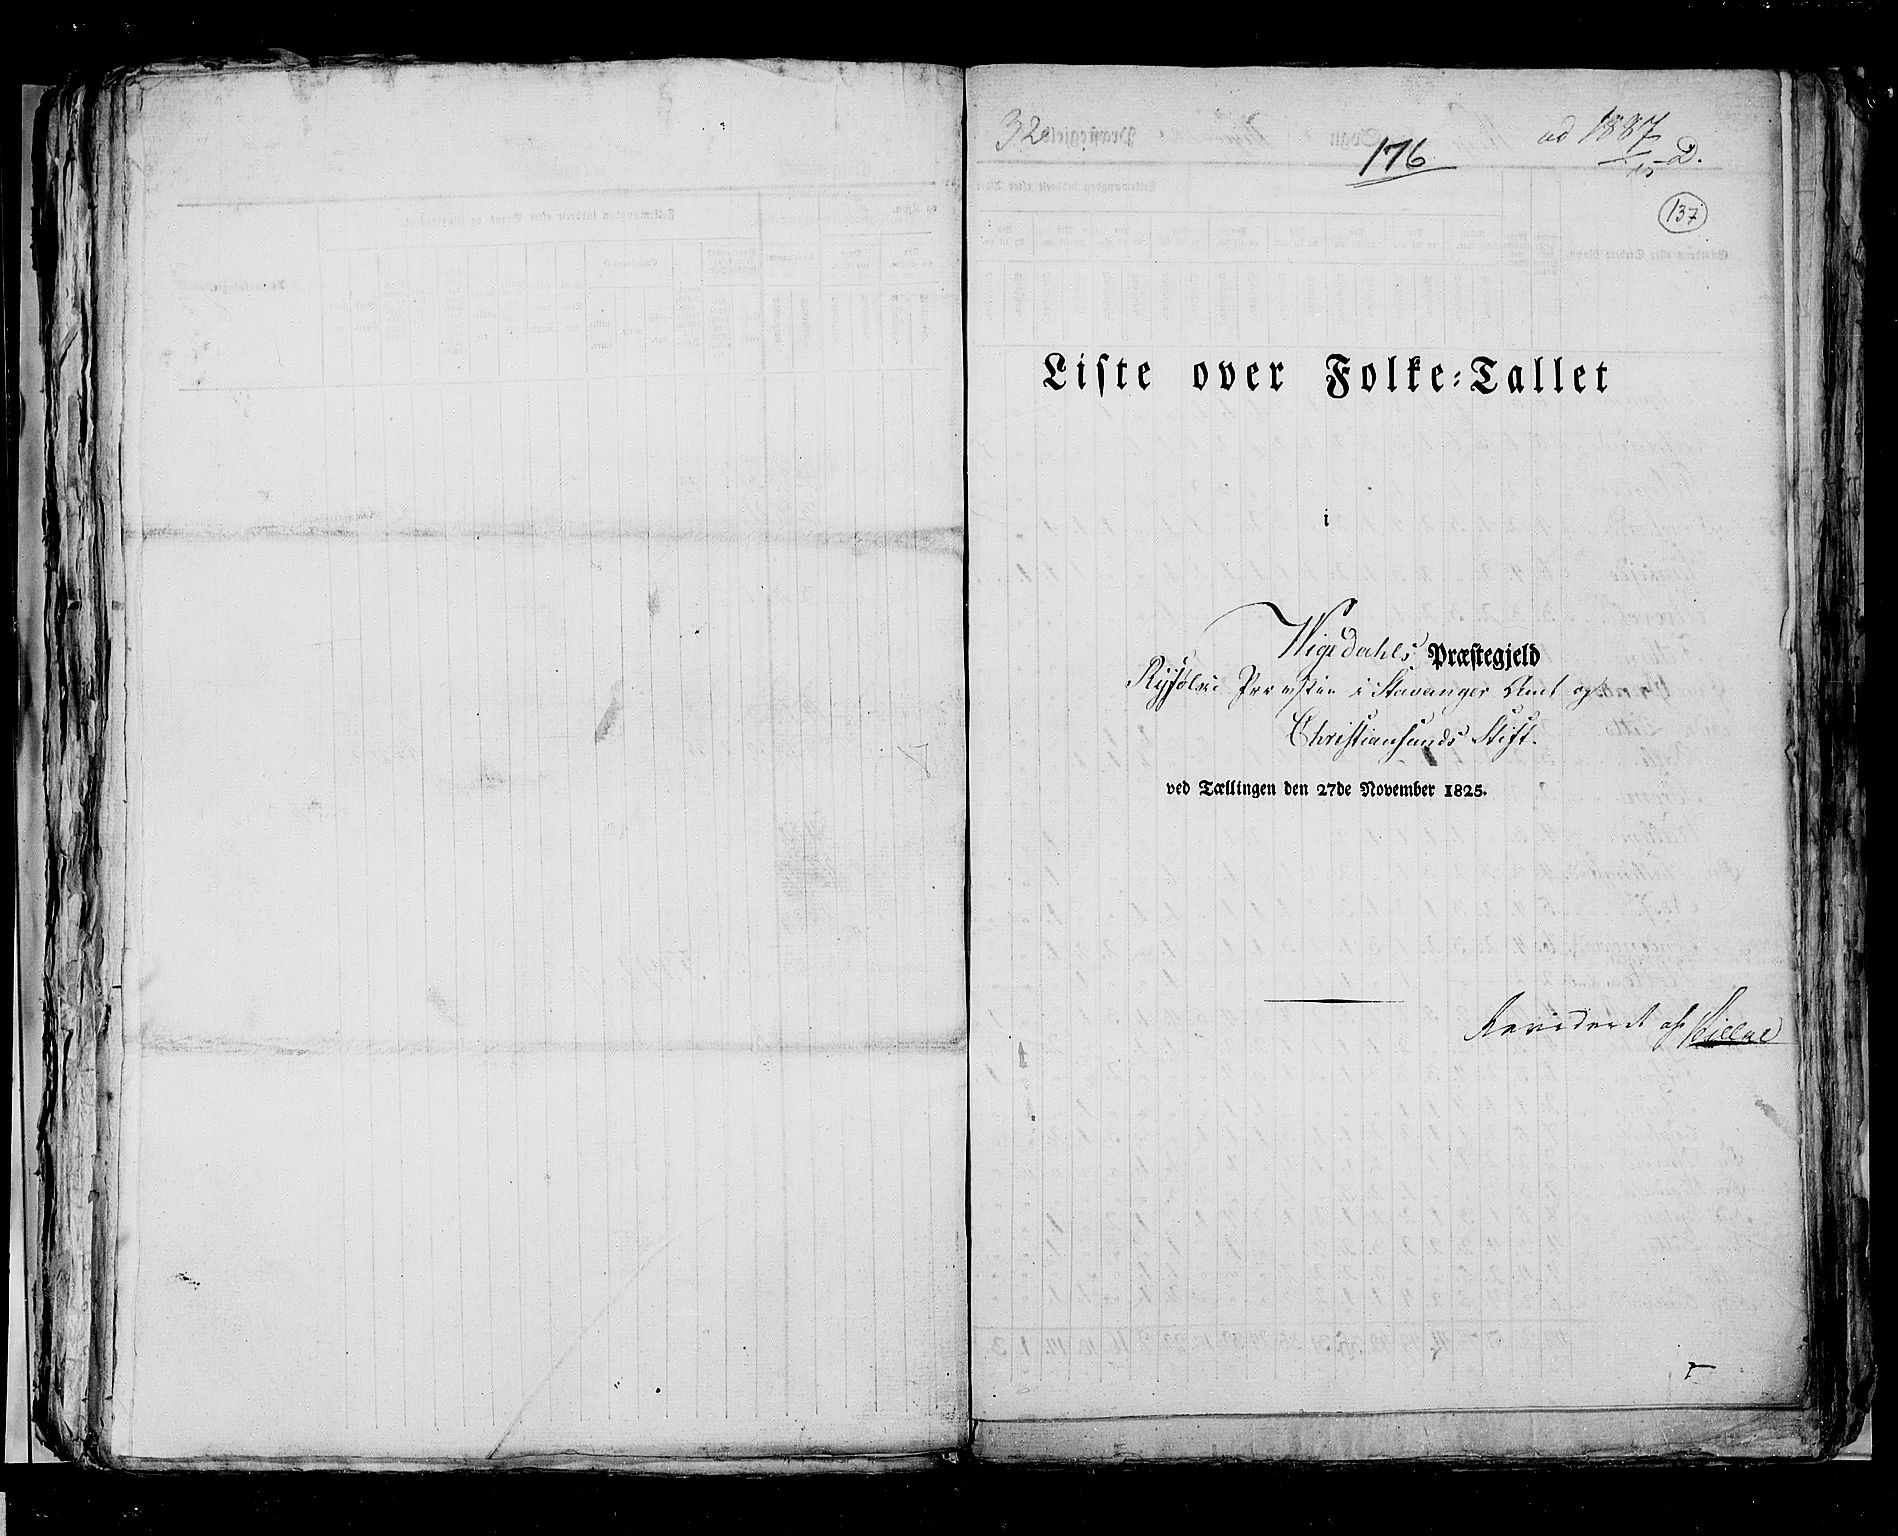 32
176
ad 1887
15 D.
137
Liste over Folke-Tallet
i
Wigedahls Præstegjeld
Ryfølke Provstie i Stavanger Amt og
Christiansands Stift.
ved Tællingen den 27de November 1825.
Revideret af